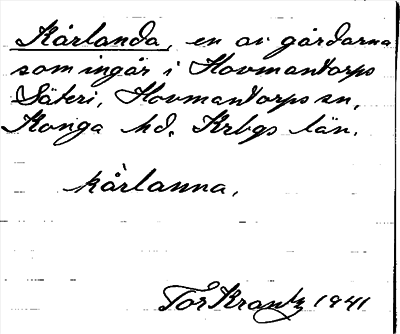 Kårlanda, en av gårdarna
som ingår i Hovmantorps
Säteri, Hovmantorps sn,
Konga hd, Krbgs län.
kårlanna,
Tor Krantz 1941